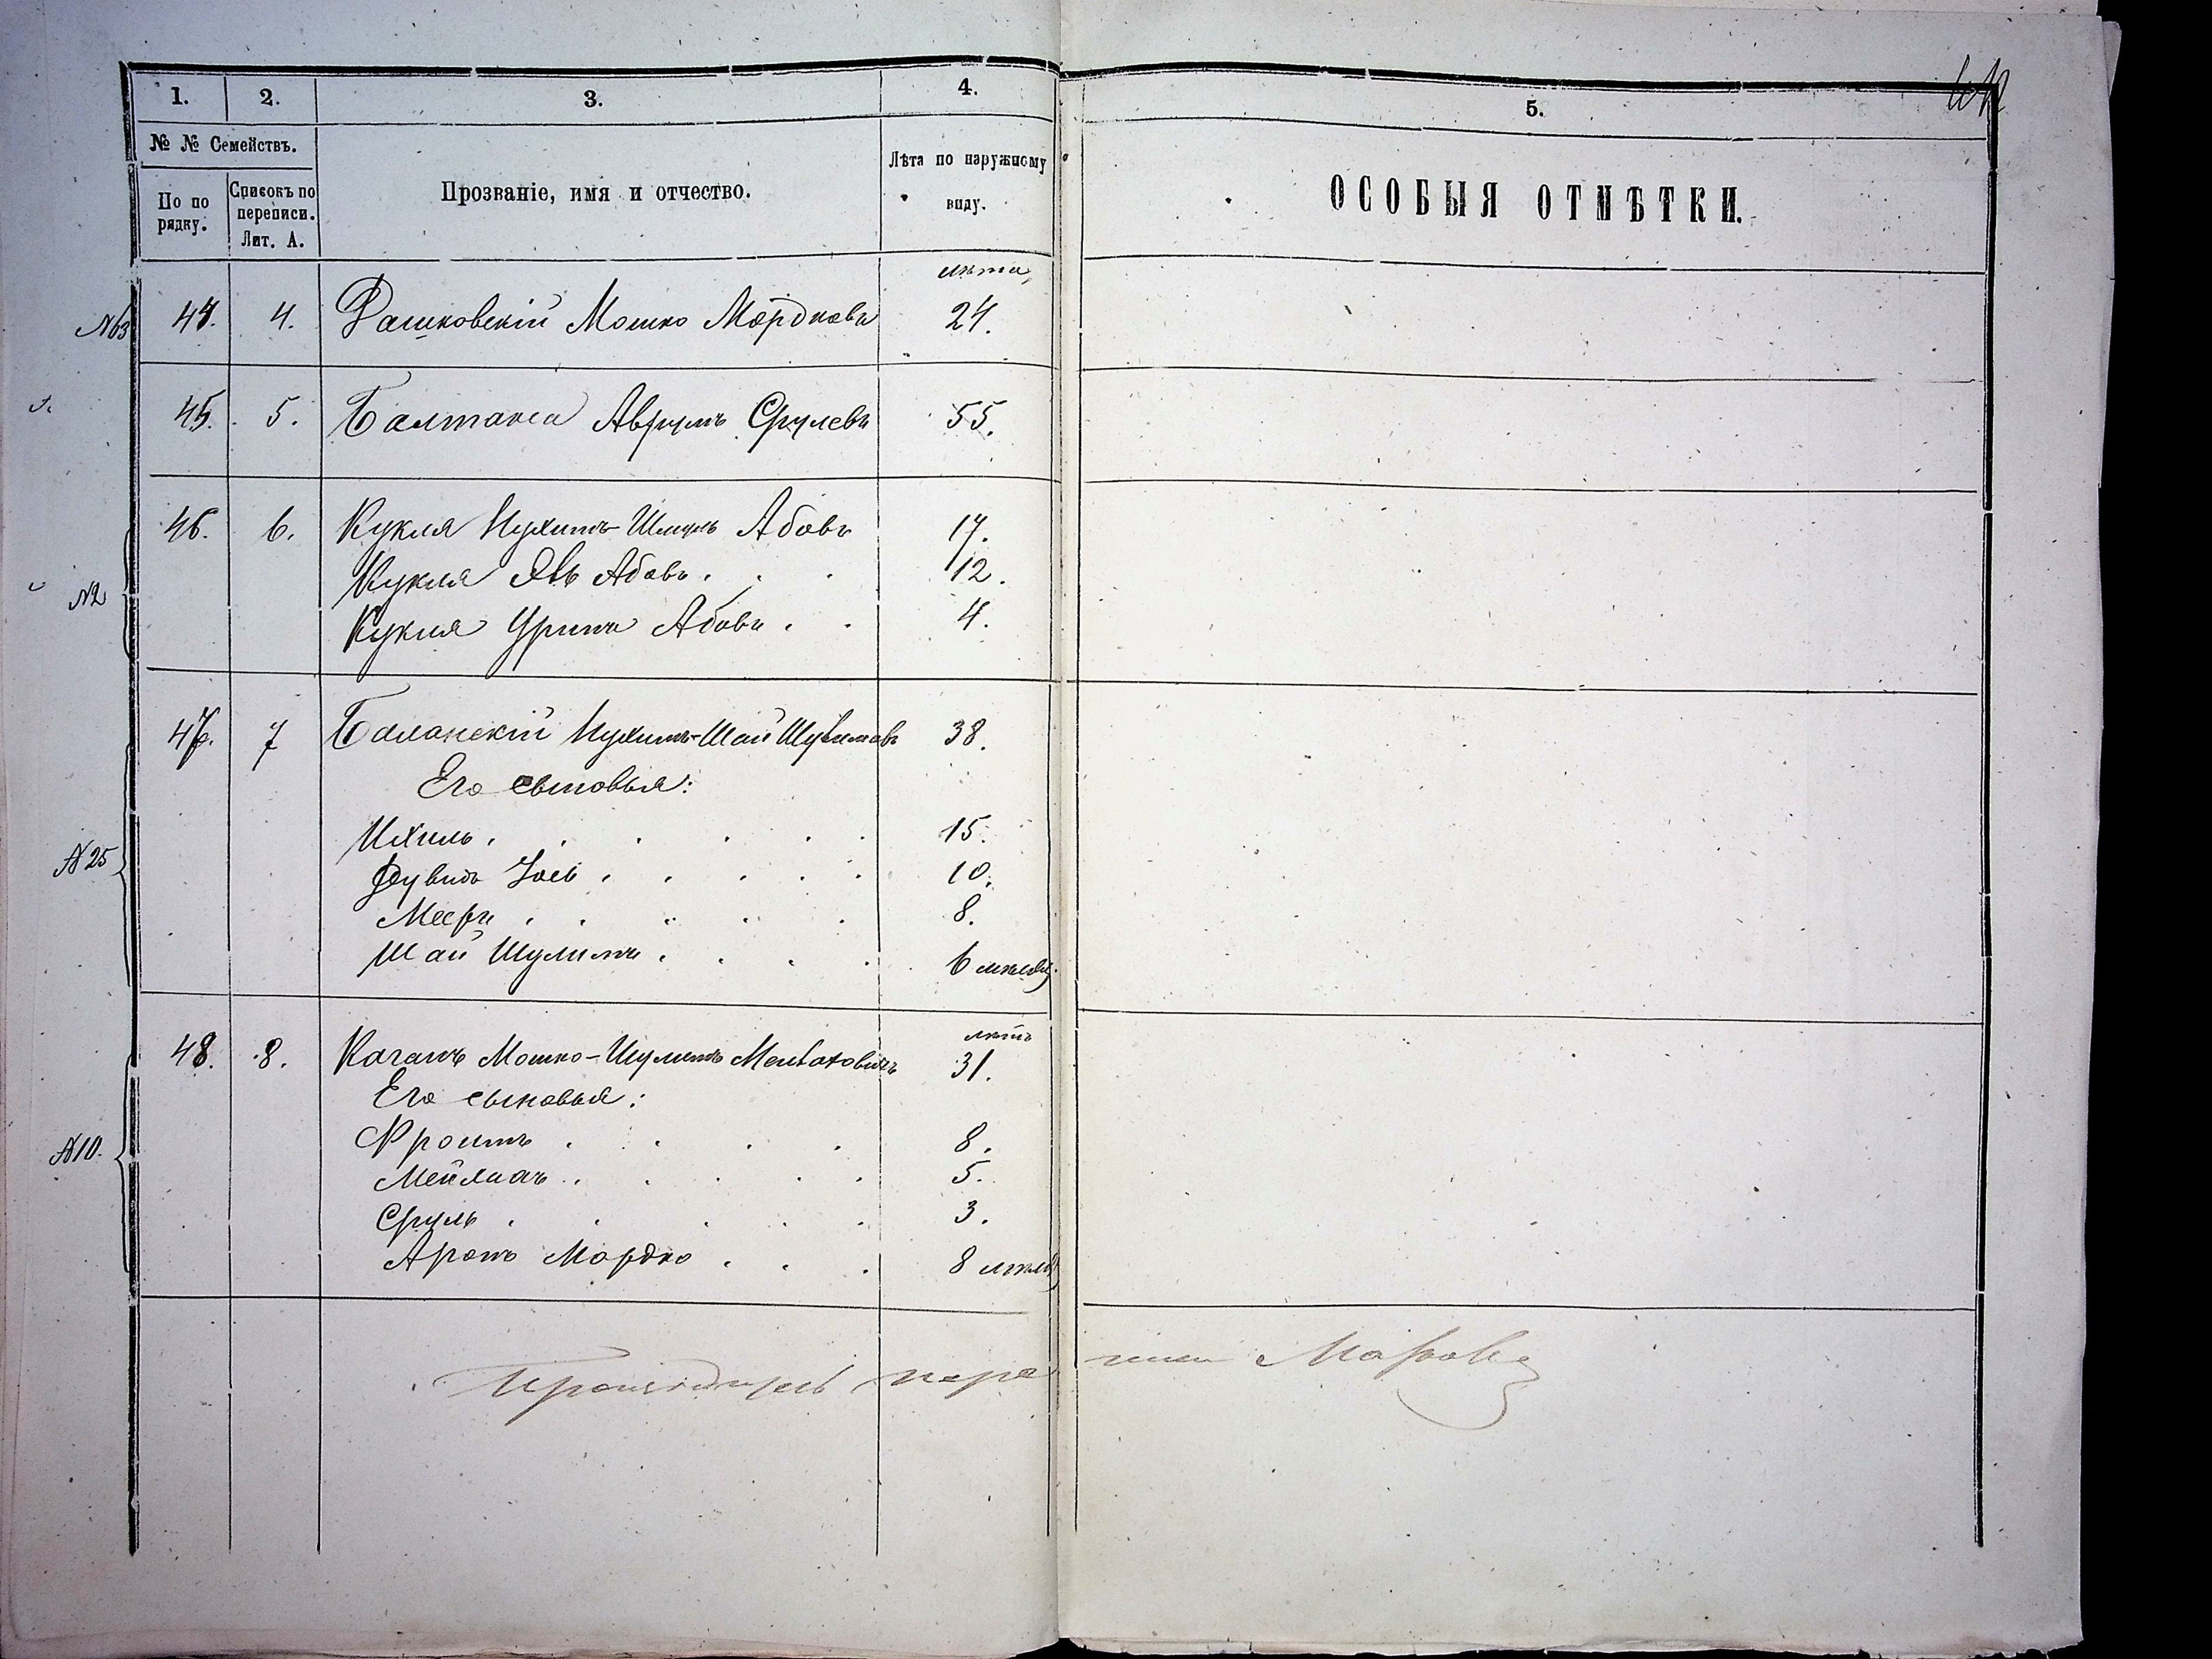 1. 2. 3. 4. 5.
№ № Семействъ.
По по рядку.
Списокъ по переписи. Лит. А.
Прозваніе, имя и отчество.
Лѣта по наружному виду.
ОСОБЫЯ ОТМѢТКИ.
лѣта
№63 44. 4. Рашковскій Мошко Мордковъ 24.
45. 5. Балтакса Аврумъ Срулевъ 55.
46. 6. Кукля Нухимъ-Шмуль Абовъ 17.
№2 Кукля Абовъ 12.
Кукля Абовъ 4.
47. 7 Баланскій Нухимъ-Шай 38.
Его сыновья:
Ихиль 15.
№25 Дувидъ Іось 10.
Мееръ 8.
Шай Шулимъ 6
лѣтъ
48. 8. Каганъ Мошко-Шулимъ 31.
Его сыновья:
№10. Фроимъ 8.
Мейлахъ 5.
Сруль 3.
Аронъ Мордко 8